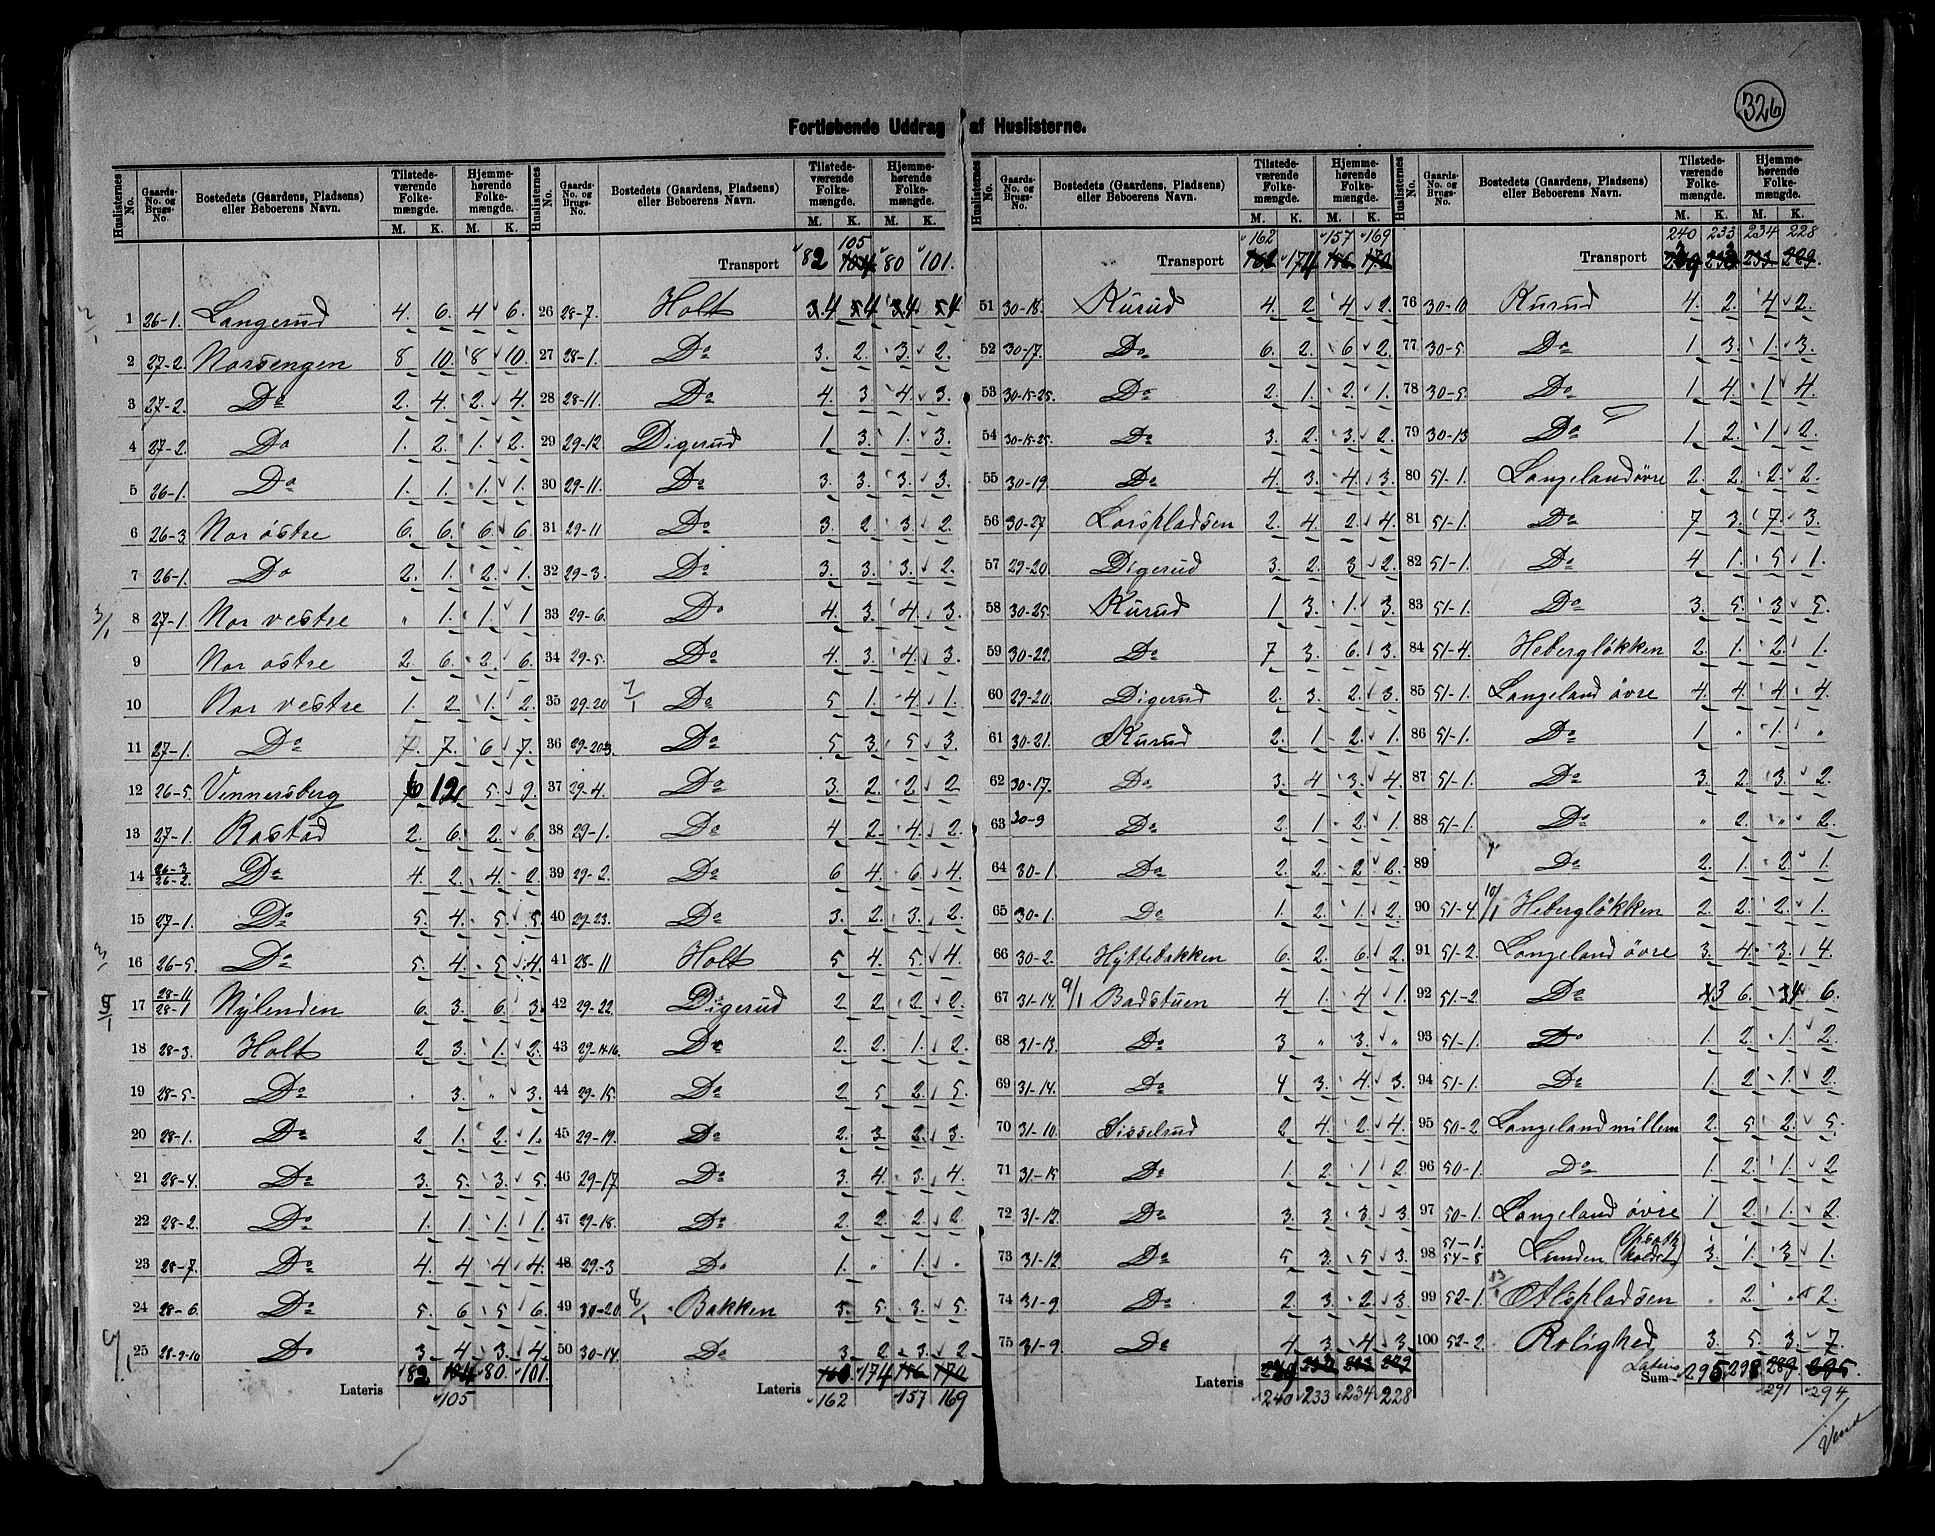 326
Fortløbende Uddrag af Huslisterne.
Huslisternes No. Gaards-No. og Brugs-No. Bostedets (Gaardens, Pladsens) eller Beboerens Navn. Tilstedeværende Folkemængde. M. K. Hjemmehørende Folkemængde. M. K.
Transport 82 105 104 80 101.
1 26-1. Langerud 4. 6. 4 6.
2 27-2. Norsengen 8 10. 8 10.
3 27-2. Do 2. 4. 2. 4.
4 27-2. Do 1. 2. 1. 2.
5 26-1. Do 1. 1. 1. 1.
6 26-3. Nor østre 6. 6. 6 6.
7 26-1. Do 2. 1. 2. 1.
8 27-1. Nor vestre " 1. 1. 1
9 Nor østre 2. 6. 2. 6.
10 Nor vestre 1. 2 1. 2.
11 27-1. Do 7. 7. 6 7.
12 26-5. Vennersberg 6 12 5 9.
13 27-1. Rastad 2. 6. 2. 6.
14 26-3 26-2. Do 4. 2. 4. 2.
15 27-1. Do 5. 4. 5. 5.
16 26-5. Do 5. 4. 5. 4.
17 28-11 28-1 Nylenden 6. 3. 6. 3.
18 28-3. Holt 2 3. 1. 2.
19 28-5. Do " 3. " 3.
20 28-1. Do 2 1. 2. 1.
21 28-4. Do 3. 5. 3. 5.
22 28-2. Do 1. 1. 1. 1.
23 28-7. Do 4. 4. 4. 4.
24 28-6. Do 5. 6. 5. 6.
25 28-9-10. Do 3. 4. 3. 4.
Lateris 82 104 80. 101.
105
26 28-7. Holt 3.4 5 4 3.4 5 4
27 28-1. Do 3. 2. 3. 2.
28 28-11. Do 4. 3. 4. 3.
29 29-12. Digerud 1 3. 1. 3.
30 29-11. Do 3. 3. 3. 3.
31 29-11 Do 3. 2. 3. 2.
32 29-3. Do 3. 3. 3. 2.
33 29-6. Do 4. 3. 4. 3.
34 29-5. Do 4. 3. 4. 3.
35 29-20 7/1 Do 5 1. 4 1.
36 29-20-3. Do 5 3. 5 3.
37 29-4. Do 3. 2. 2. 2
38 29-1. Do 4 2. 4. 2.
39 29-2. Do 6 4. 6 4.
40 29-23. Do 3. 2. 3. 2.
41 28-11 Holt 5 4. 5. 4.
42 29-22. Digerud 2 2. 2. 2.
43 29-14-16. Do 2. 2. 1. 2.
44 29-15. Do 2 5 2. 5.
45 29-19. Do 2. 3 2. 3.
46 29-17. Do 3. 4. 3. 4.
47 29-18. Do 2. 2. 2. 2.
48 29-3 Do 1. " 1. "
49 30-20. 8/1 Bakken 5. 5. 3. 5.
50 30-14. Do 3. 2. 3. 2.
Lateris 174 156 170
162 157 169
162 157 169
Transport 174 156 170
51 30-18. Kurud 4. 2 4. 2.
52 30-17. Do 6. 2. 6 2.
53 30-15-25. Do 2. 1. 2. 1.
54 30-15-25. Do 3. 2. 3. 2.
55 30-19. Do 4. 3. 4. 3.
56 30-27. Lorspladsen 2. 4. 2. 4.
57 29-20 Digerud 3. 2. 3. 2.
58 30-25. Kurud 1 3. 1. 3.
59 30-22. Do 7 3. 6. 3.
60 29-20. Digerud 2. 3. 2. 3.
61 30-21. Kurud 2. 1. 2. 1.
62 30-17. Do 3. 4 3. 4.
63 30-9 Do 2. 1. 2. 1.
64 30-1. Do 2. 2. 2. 2.
65 30-1. Do 1. 2. 1. 2.
66 30-2. Hyttebakken 6. 2. 6. 2
67 31-14. 9/1 Badstuen 4 1. 4 1.
68 31-13. Do 3 " 3. "
69 31-14. Do 4 3. 4. 3.
70 31-10. Sisselrud 2 4. 2. 4.
71 31-15 Do 1. 2 1. 2.
72 31-12. Do 3. 3. 3. 3.
73 31-12 Do 5 3. 5. 3.
74 31-9. Do 2. 3. 2. 3.
75 31-9 Do 4. 3. 4. 3.
Lateris
240 233 234 228
240 233 234 228
Transport 233 229.
76 30-10 Kurud 4. 2. 4. 2.
77 30-5. Do 1 3. 1. 3.
78 30-5. Do 1 4. 1. 4.
79 30-13 Do 1. 2. 1. 2.
80 51-1. Langeland øvre 2. 2. 2. 2.
81 51-1. Do 7 3. 7. 3.
82 51-1. Do 4 1. 5 1.
83 51-1. Do 3. 5. 3 5.
84 51-4. Hebergløkken 2. 1. 2. 1.
85 51-1. Langeland øvre 4. 4. 4. 4.
86 51-1. Do 1 " 1. "
87 51-1. Do 3. 2. 3. 2.
88 51-1. Do " 2. " 2.
89 Do 2. 1. 2. 1.
90 51-4. 10/1 Hebergløkken 2. 2. 2. 1.
91 51-2. Langeland øvre 3. 4. 3. 4.
92 51-2. Do 3 6. 4. 6.
93 51-1. Do 1. 2. 1. 2
94 51-1. Do 1. 2 1. 2.
95 50-2. Langeland millem 2. 5. 2. 5.
96 50-1. Do 1. 2. 1. 2
97 50-1. Langeland øvre 1. 2. 1. 2
98 51-1. 54-8 Lunden 3. 1. 3 1.
99 52-1. 13/1 Alspladsen " 2. " 2.
100 52-2. Rolighed 3. 5. 3. 7.
Lateris Sum 295 298 289 295.
291 294
Vend